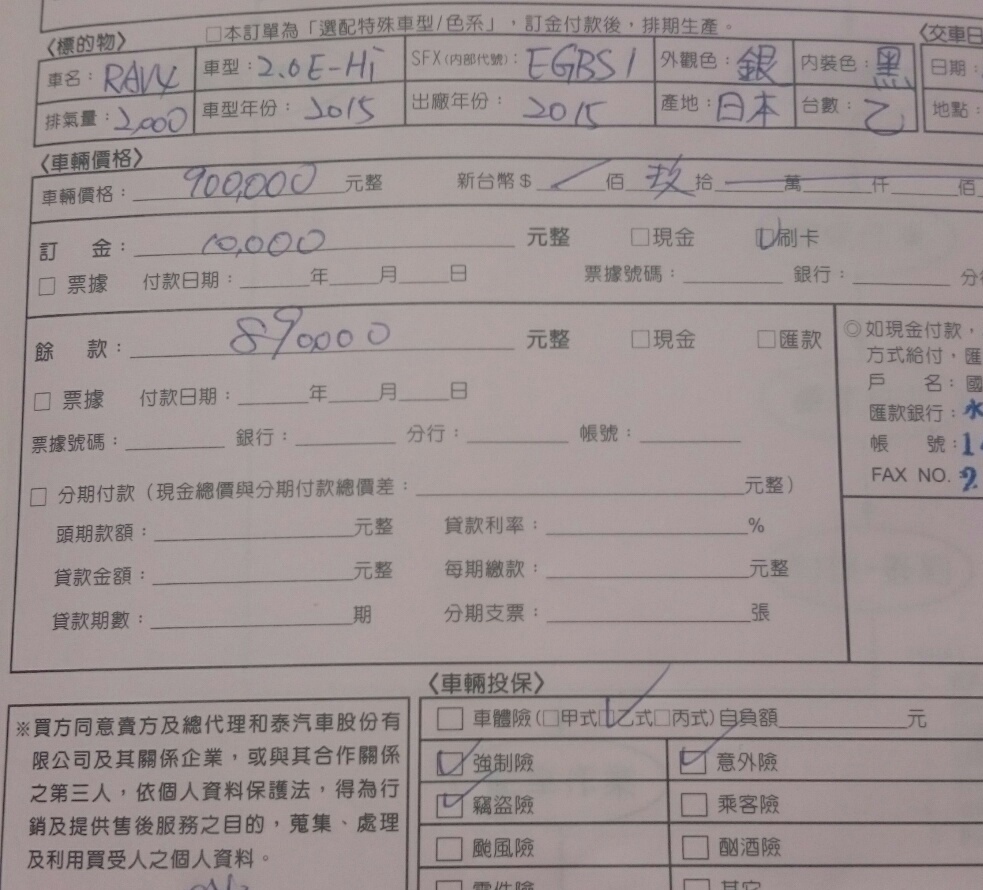 □本訂單為「選配特殊車型/色系」，訂金付款後，排期生產。
〈標的物〉 〈交車日
車名：RAV4 車型：2.0E-Hi SFX(內部代號)：EGBS1 外觀色：銀 內裝色：黑 日期：
排氣量：2,000 車型年份：2015 出廠年份：2015 產地：日本 台數：乙 地點：
〈車輛價格〉
車輛價格：900,000 元整 新台幣$ 佰 玖 拾 萬 仟 佰
訂 金：10,000 元整 □現金 ☑刷卡
□ 票據 付款日期： 年 月 日 票據號碼： 銀行： 分行
餘 款：890,000 元整 □現金 □匯款
□ 票據 付款日期： 年 月 日
票據號碼： 銀行： 分行： 帳號：
□ 分期付款（現金總價與分期付款總價差： 元整）
頭期款額： 元整 貸款利率： %
貸款金額： 元整 每期繳款： 元整
貸款期數： 期 分期支票： 張
◎如現金付款，
方式給付，匯
戶 名：國
匯款銀行：水
帳 號：14
FAX NO. 2
※買方同意賣方及總代理和泰汽車股份有
限公司及其關係企業，或與其合作關係
之第三人，依個人資料保護法，得為行
銷及提供售後服務之目的，蒐集、處理
及利用買受人之個人資料。
〈車輛投保〉
□ 車體險(□甲式☑乙式□丙式)自負額 元
☑ 強制險 ☑ 意外險
☑ 竊盜險 □ 乘客險
□ 颱風險 □ 酗酒險
□ 零件險 □ 其它